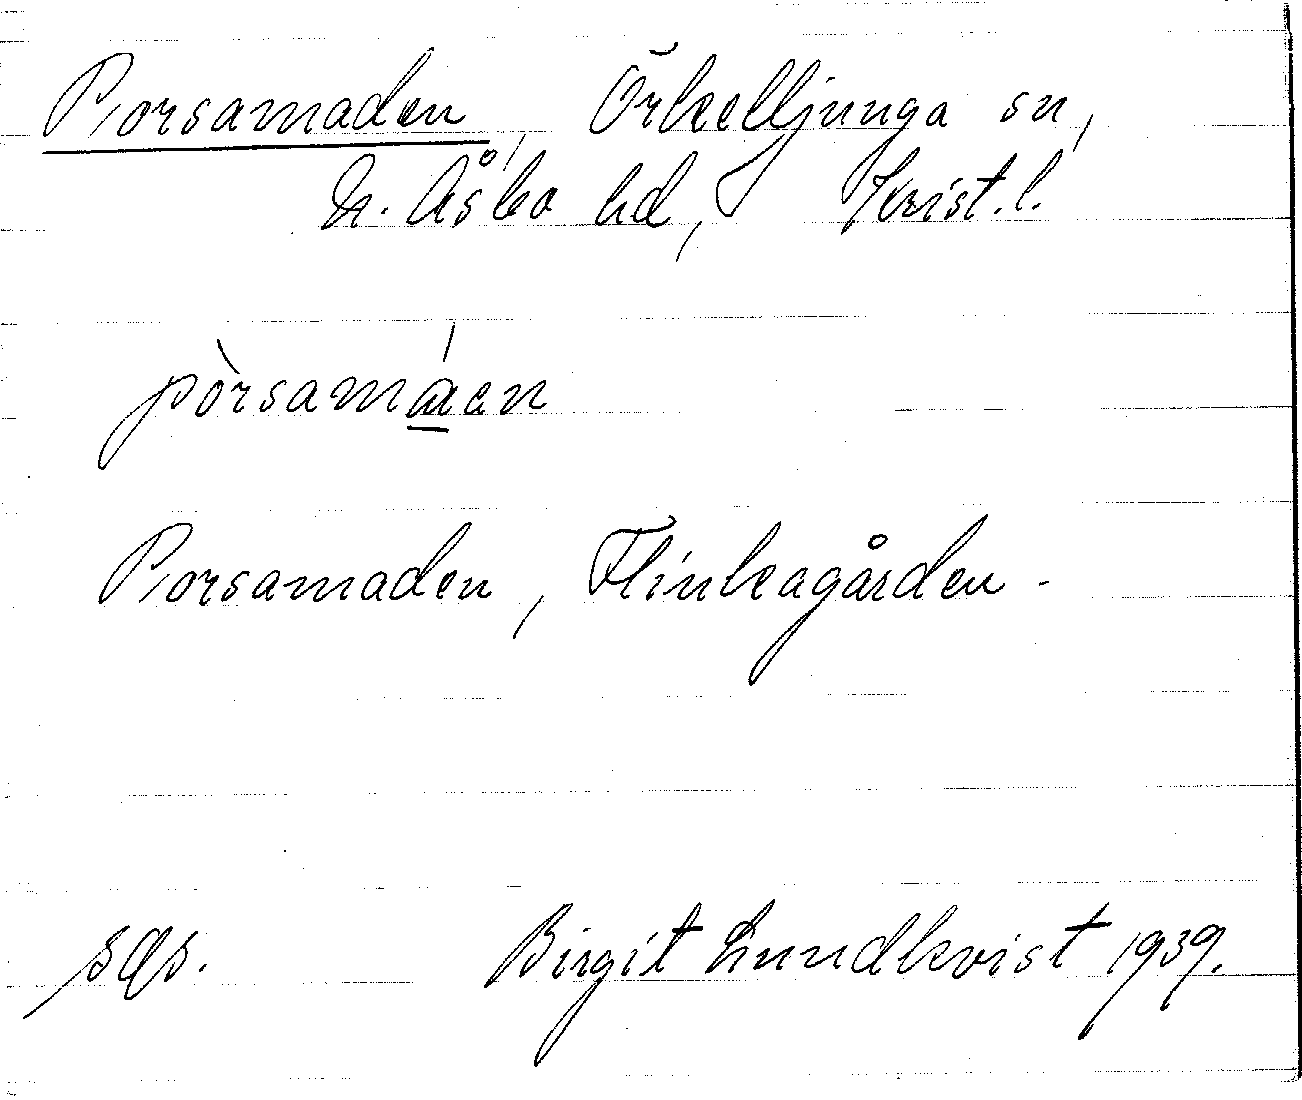 Porsamaden, Örkelljunga sn,
N. Åsbo hd, Krist. l.
pòrsamáen
Porsamaden, Flinkagården -
sgs. Birgit Lundkvist 1939.